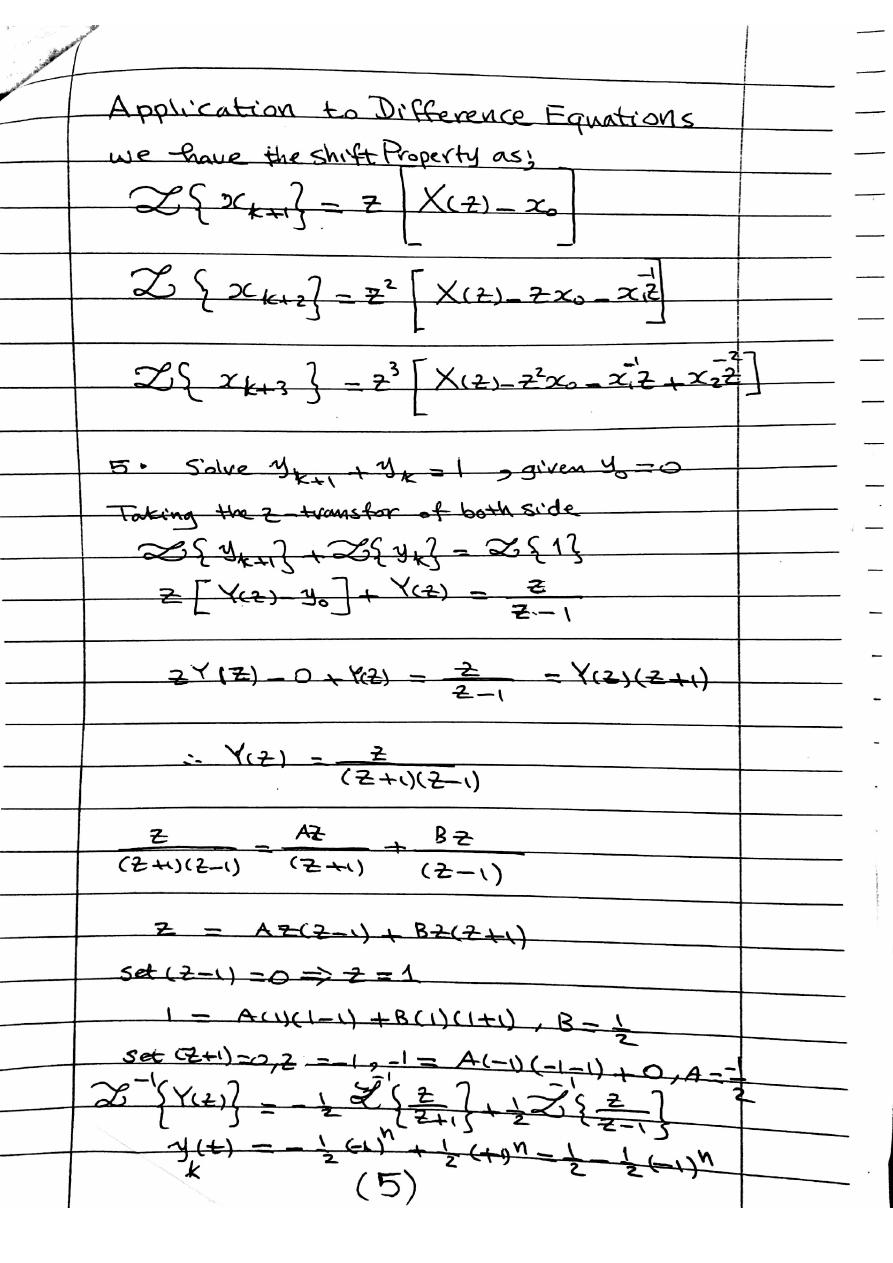 Application to Difference Equations
we have the shift Property as;
Z{x_{k+1}} = z [X(z) - x₀]
Z{x_{k+2}} = z² [X(z) - zx₀ - x₁z⁻¹]
Z{x_{k+3}} = z³ [X(z) - z²x₀ - x₁⁻¹z + x₂z⁻²]
5. Solve y_{k+1} + y_k = 1 , given y₀ = 0
Taking the z-transfor of both side
Z{y_{k+1}} + Z{y_k} = Z{1}
z [Y(z) - y₀] + Y(z) = z/(z-1)
zY(z) - 0 + Y(z) = z/(z-1) = Y(z)(z+1)
∴ Y(z) = z/((z+1)(z-1))
z/((z+1)(z-1)) = Az/(z+1) + Bz/(z-1)
z = Az(z-1) + Bz(z+1)
set (z-1) = 0 ⇒ z = 1
1 = A(1)(1-1) + B(1)(1+1) , B = 1/2
set (z+1)=0, z = -1, -1 = A(-1)(-1-1) + 0, A = -1/2
Z⁻¹{Y(z)} = -1/2 Z⁻¹{z/(z+1)} + 1/2 Z⁻¹{z/(z-1)}
y_k(t) = -1/2 (-1)ⁿ + 1/2 (+1)ⁿ = 1/2 - 1/2 (-1)ⁿ
(5)